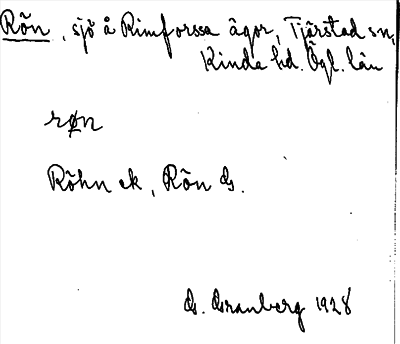 Rön, sjö å Rimforssa ägor, Tjärstad sn,
Kinda hd. Ögl. län
røn
Röhn ek, Rön G.
G. Granberg 1928